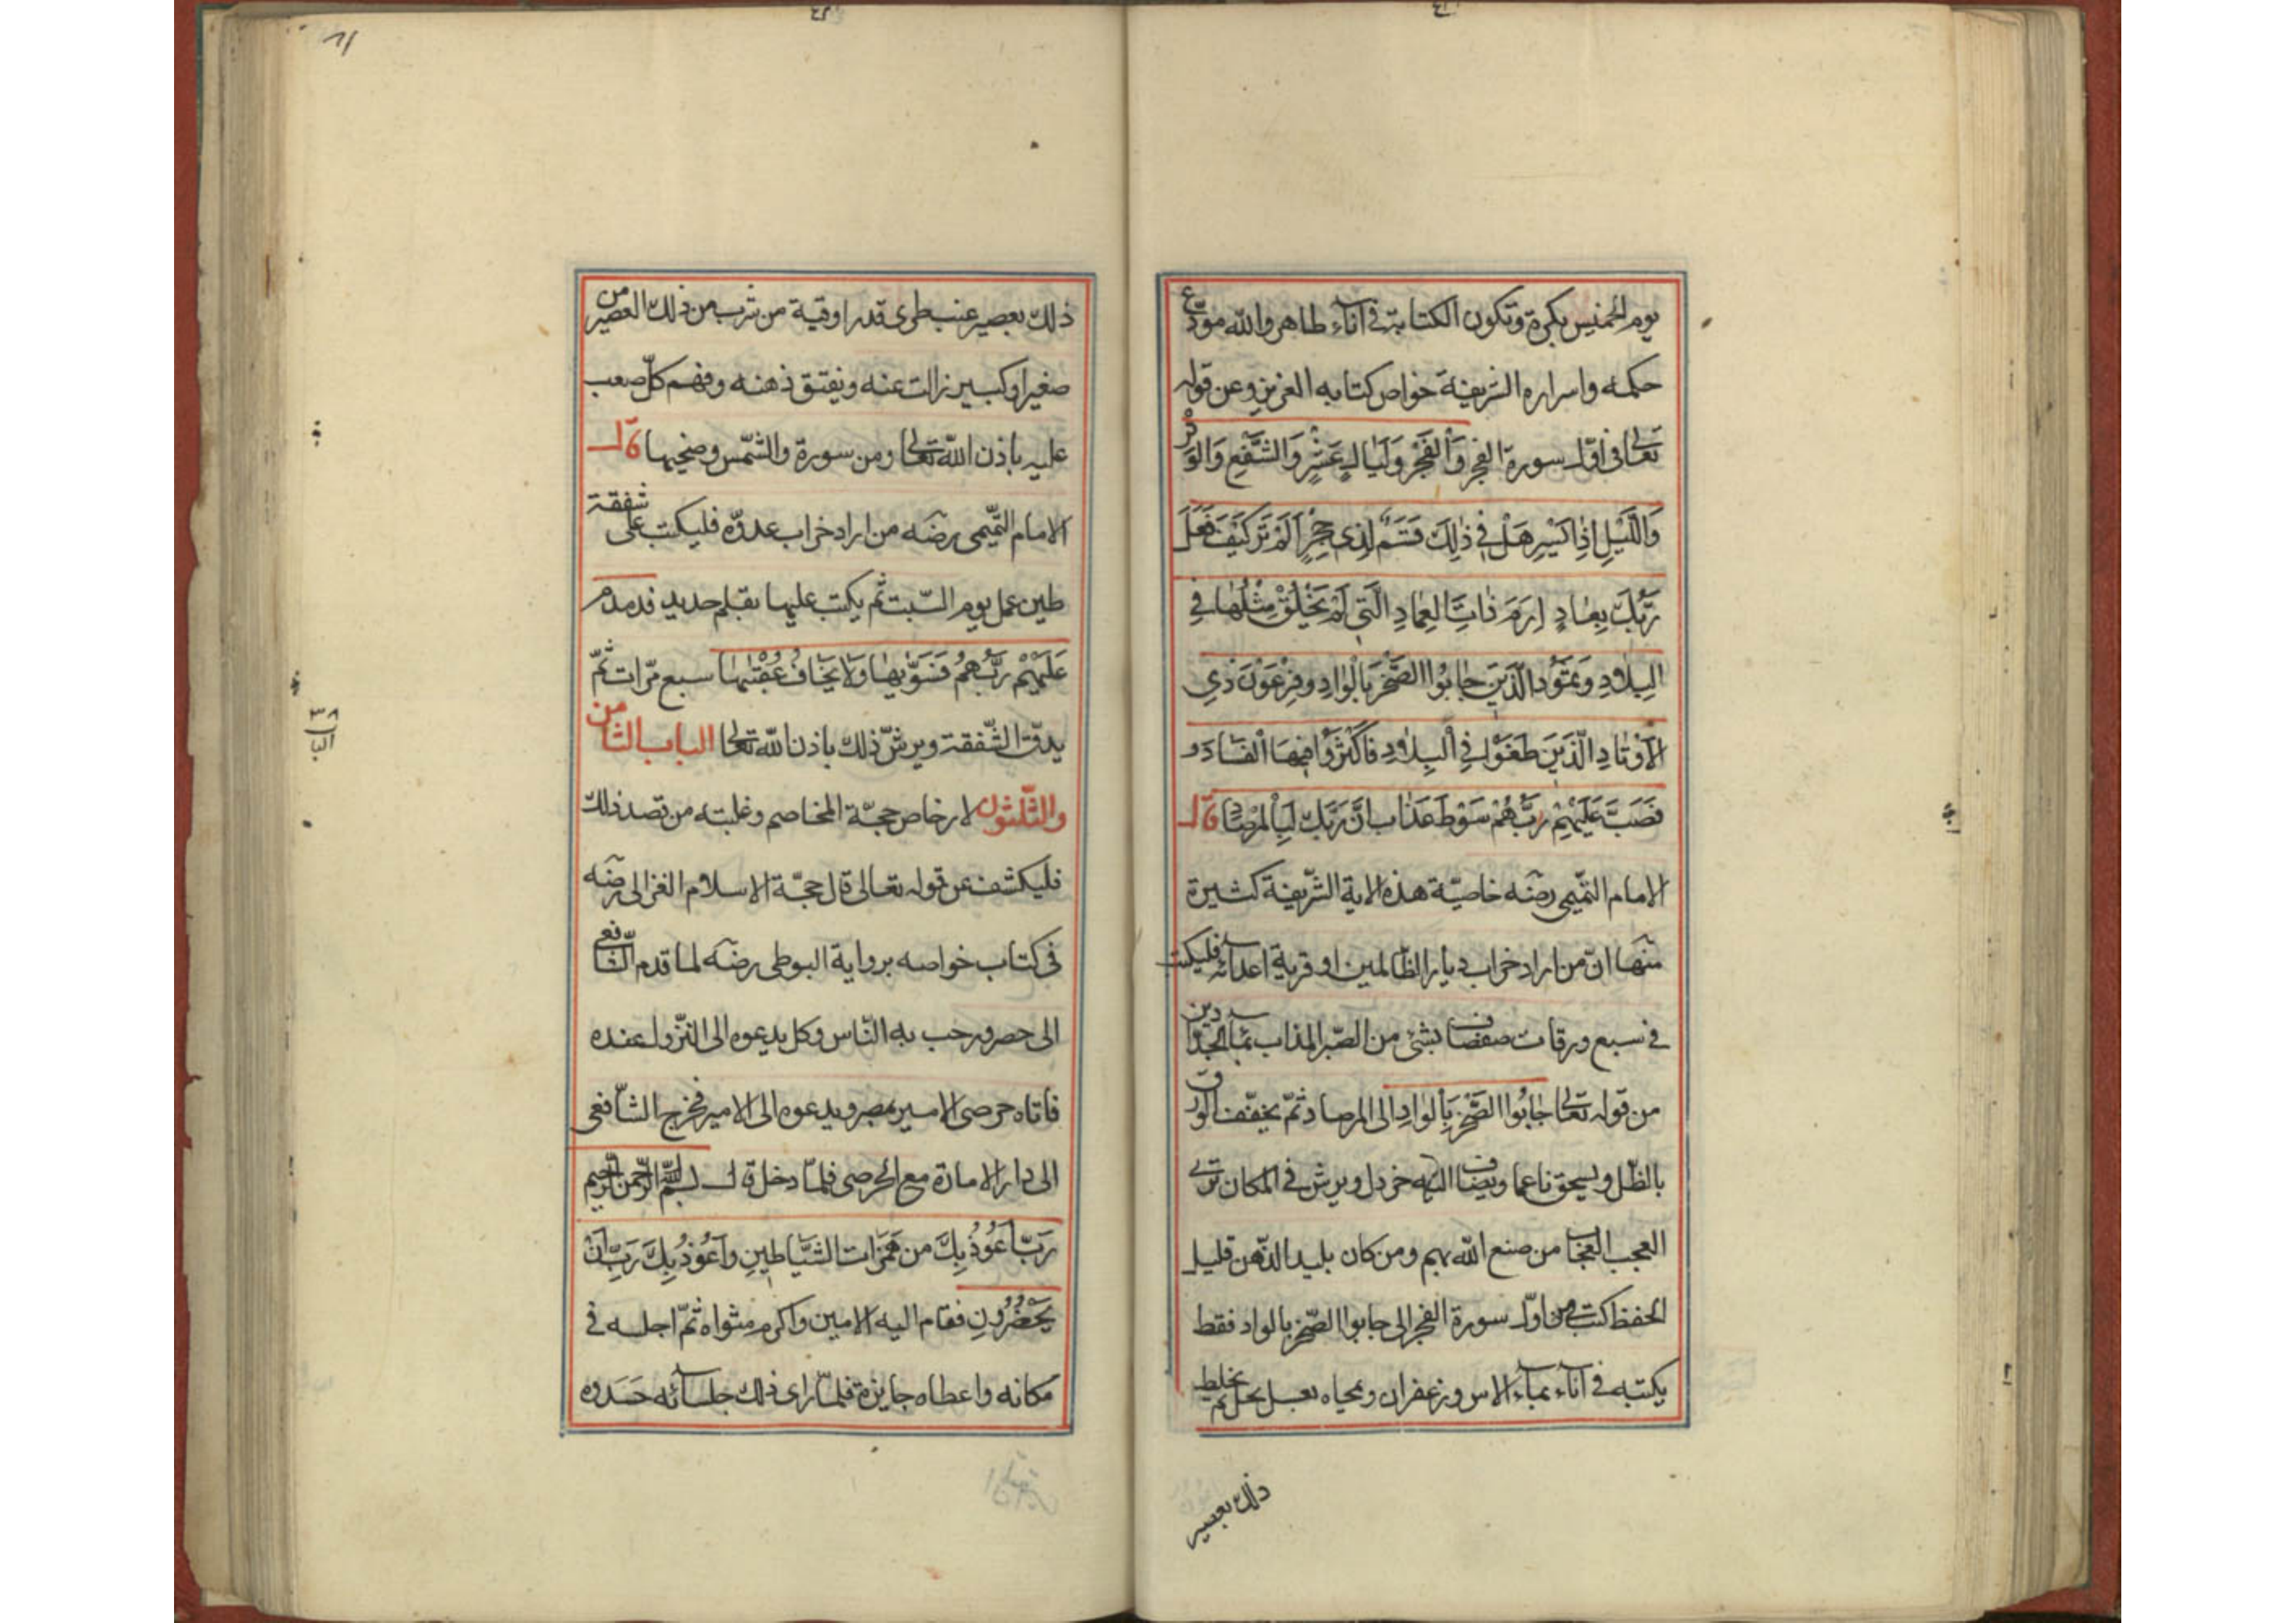 يوم الخميس بكرة وتكون الكتابة فى اناء طاهر والله مودع
حكمه واسراره الشريفة خواص كتابه العزيز وعن قوله
تعالى فى اوّل سورة الفجر وَالْفَجْرِ وَلَيَالٍ عَشْرٍ وَالشَّفْعِ وَالْوَتْرِ
وَاللَّيْلِ اِذَا يَسْرِ هَلْ فِى ذٰلِكَ قَسَمٌ لِذِى حِجْرٍ اَلَمْ تَرَ كَيْفَ فَعَلَ
رَبُّكَ بِعَادٍ اِرَمَ ذَاتِ الْعِمَادِ الَّتِى لَمْ يُخْلَقْ مِثْلُهَا فِى
الْبِلَادِ وَثَمُودَ الَّذِينَ جَابُوا الصَّخْرَ بِالْوَادِ وَفِرْعَوْنَ ذِي
الْاَوْتَادِ الَّذِينَ طَغَوْا فِى الْبِلَادِ فَاَكْثَرُوا فِيهَا الْفَسَادَ
فَصَبَّ عَلَيْهِمْ رَبُّهُمْ سَوْطَ عَذَاب اِنَّ رَبَّكَ لَبِالْمِرْصَادِ قال
الامام التّميمى رضه خاصيّة هذه الاية الشّريفة كثيرة
منها انّ من اراد خراب ديار الظّالمين او قرية اعدائه فليكتب
فى سبع ورقات صفصاف بشئ من الصّبر المذاب بماء
من قوله تعالى جَابُوا الصَّخْرَ بِالْوَادِ الى المرصاد ثمّ يخفّف الورق
بالظّل ويسحق ناعما ويضاف اليه خردل ويرش فى المكان ترى
العجب العجاب من صنع الله بهم ومن كان بليد الذّهن قليل
الحفظ كتب من اوّل سورة الفجر الى جابوا الصّخر بالواد فقط
يكتبه فى اناء بماء الاس وزعفران ومحاه بعسل نحل ثم يخلط
ذلك بعصير
ذلك بعصير عنب طرى قدر اوقية من شرب من ذلك العصير من
صغير او كبير زالت عنه ويفتق ذهنه وفهم كلّ صعب
عليه باذن الله تعالى ومن سورة والشّمس وضحيها قال
الامام التّميمى رضه من اراد خراب عدوّه فليكتب على شفقة
طين عمل يوم السّبت ثم يكتب عليها بقلم حديد فدمدم
عَلَيْهِمْ رَبُّهُمْ فَسَوّٰيهَا وَلَا يَخَافُ عُقْبٰيهَا سبع مرّات ثمّ
يدقّ الشّفقة ويرشّ ذلك باذن الله تعالى الباب الثامن
والثّلثون لارخاص حجّة المخاصم وغلبته من قصد ذلك
فليكشف عن قوله تعالى قال حجّة الاسلام الغزالى رضه
فى كتاب خواصه برواية البوطى رضه لما قدم الشّافعى
الى مصر ورحب به النّاس وكل يدعوه الى النّزول عنده
فاتاه حرصى الامير بمصر ويدعوه الى الامير فخرج الشّافعى
الى دار الامارة مع الحرصى فلمّا دخل قال بسم الله الرّحمن الرّحيم
رَبِّ اَعُوذُ بِكَ مِن هَمَزَات الشَّيَاطِينِ وَاَعُوذُ بِكَ رَبِّ اَنْ
يَحْضُرُونِ فقام اليه الامين واكرم مثواه ثمّ اجلسه فى
مكانه واعطاه جايزة فلمّا راى ذلك جلسائه حَسَدوه
٣٨
الباب